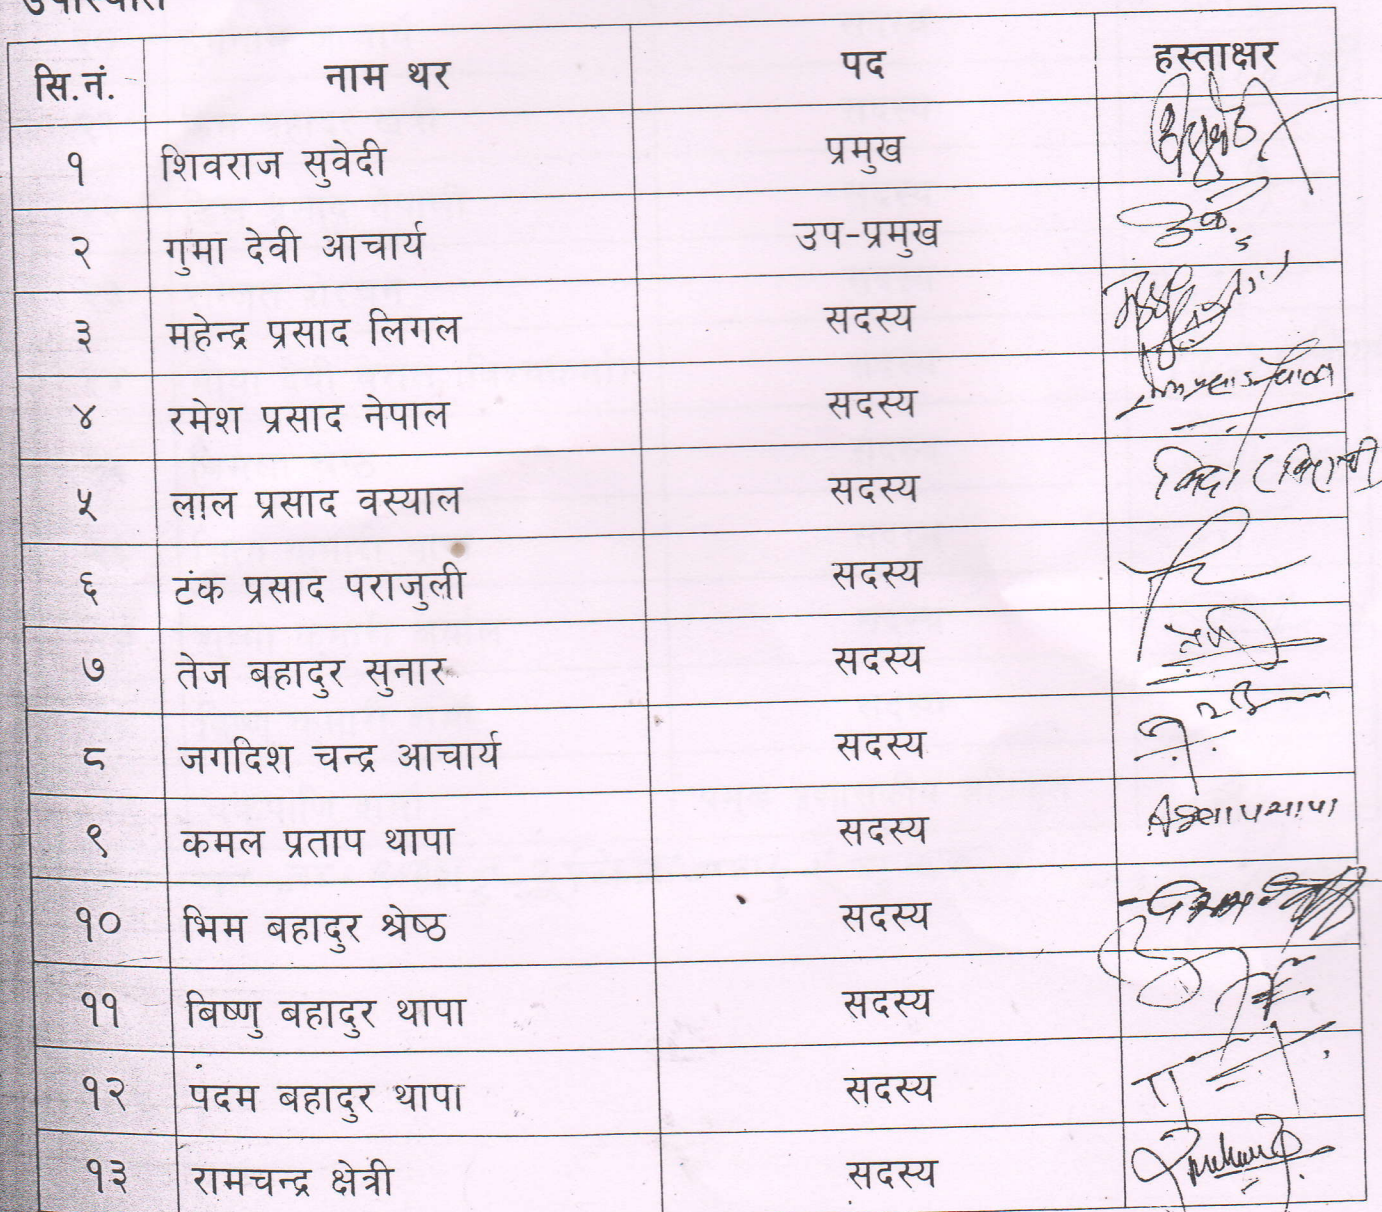 उपस्थिति
सि.नं. नाम थर पद हस्ताक्षर
१ शिवराज सुवेदी प्रमुख
२ गुमा देवी आचार्य उप-प्रमुख
३ महेन्द्र प्रसाद लिगल सदस्य
४ रमेश प्रसाद नेपाल सदस्य
५ लाल प्रसाद वस्याल सदस्य
६ टंक प्रसाद पराजुली सदस्य
७ तेज बहादुर सुनार सदस्य
८ जगदिश चन्द्र आचार्य सदस्य
९ कमल प्रताप थापा सदस्य
१० भिम बहादुर श्रेष्ठ सदस्य
११ बिष्णु बहादुर थापा सदस्य
१२ पदम बहादुर थापा सदस्य
१३ रामचन्द्र क्षेत्री सदस्य